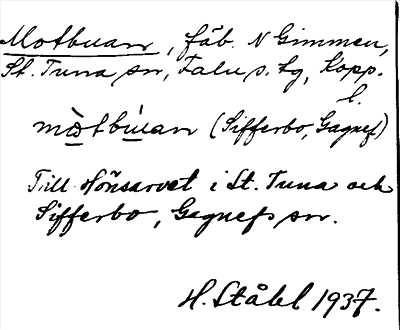 Motbuan, fäb. N Gimmen,
St. Tuna sn, Falu s. tg, Kopp.
l.
mò̱tbu̱̍an (Sifferbo, Gagnef)
Till Hönsarvet i St. Tuna och
Sifferbo, Gagnefs sn.
H. Ståhl 1937.